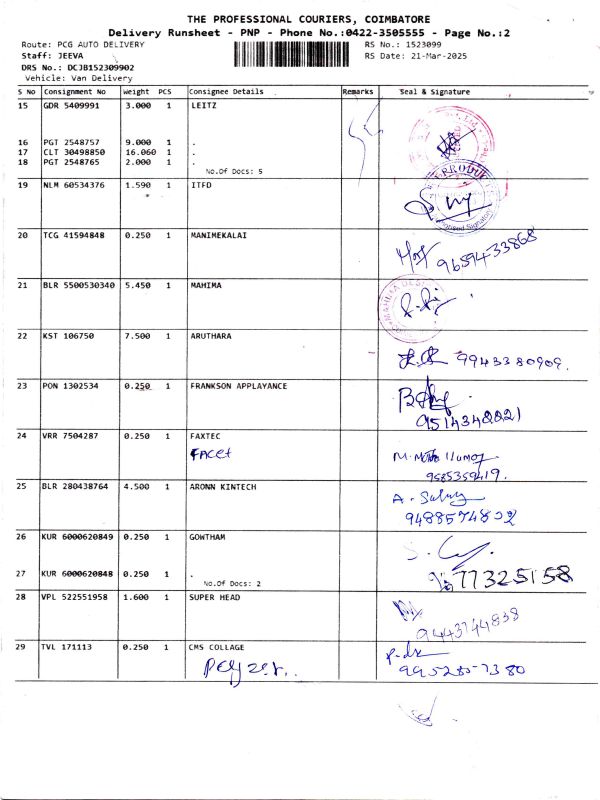 THE PROFESSIONAL COURIERS, COIMBATORE
Delivery Runsheet - PNP - Phone No.:0422-3505555 - Page No.:2
Route: PCG AUTO DELIVERY RS No.: 1523099
Staff: JEEVA RS Date: 21-Mar-2025
DRS No.: DCJB152309902
Vehicle: Van Delivery
S No Consignment No Weight PCS Consignee Details Remarks Seal & Signature
15 GDR 5409991 3.000 1 LEITZ
16 PGT 2548757 9.000 1 .
17 CLT 30498850 16.060 1 .
18 PGT 2548765 2.000 1 .
No.Of Docs: 5
19 NLM 60534376 1.590 1 ITFD
20 TCG 41594848 0.250 1 MANIMEKALAI
9659433868
21 BLR 5500530340 5.450 1 MAHIMA
22 KST 106750 7.500 1 ARUTHARA
9943380909.
23 PON 1302534 0.250 1 FRANKSON APPLAYANCE
9514348821
24 VRR 7504287 0.250 1 FAXTEC
FACET
9585359419.
25 BLR 280438764 4.500 1 ARONN KINTECH
9488574802
26 KUR 6000620849 0.250 1 GOWTHAM
27 KUR 6000620848 0.250 1 .
No.Of Docs: 2
77325158
28 VPL 522551958 1.600 1 SUPER HEAD
9443744838
29 TVL 171113 0.250 1 CMS COLLAGE